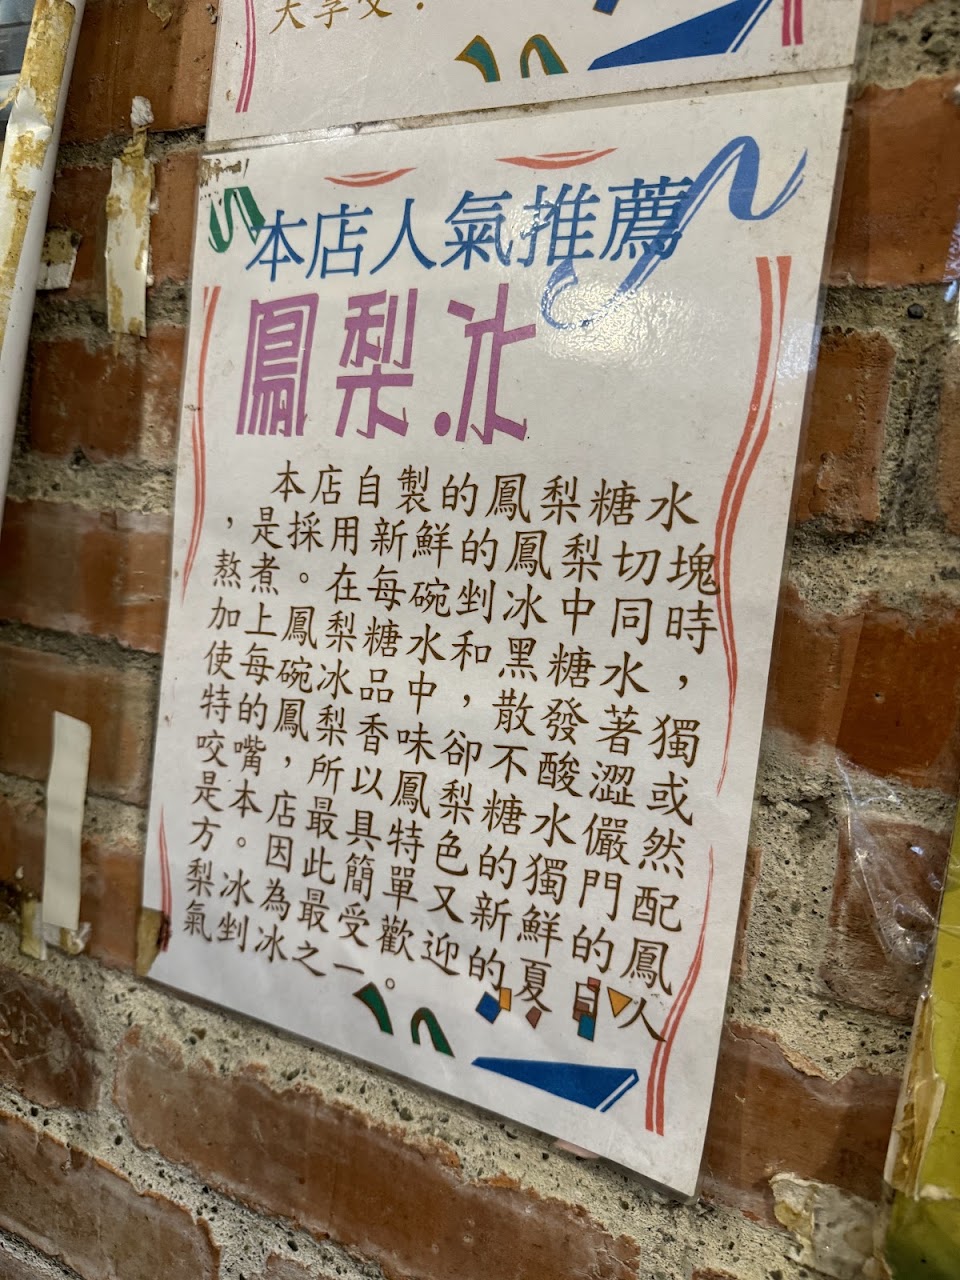 大享受！
本店人氣推薦
鳳梨冰
本店自製的鳳梨糖水
，是採用新鮮的鳳梨切塊
熬煮。在每碗剉冰中同時
加上鳳梨糖水和黑糖水，
使每碗冰品中，散發著獨
特的鳳梨香味卻不酸澀或
咬嘴，所以鳳梨糖水儼然
是本店最具特色的獨門配
方。因此簡單又新鮮的鳳
梨冰為最受歡迎的夏日人
氣剉冰之一。